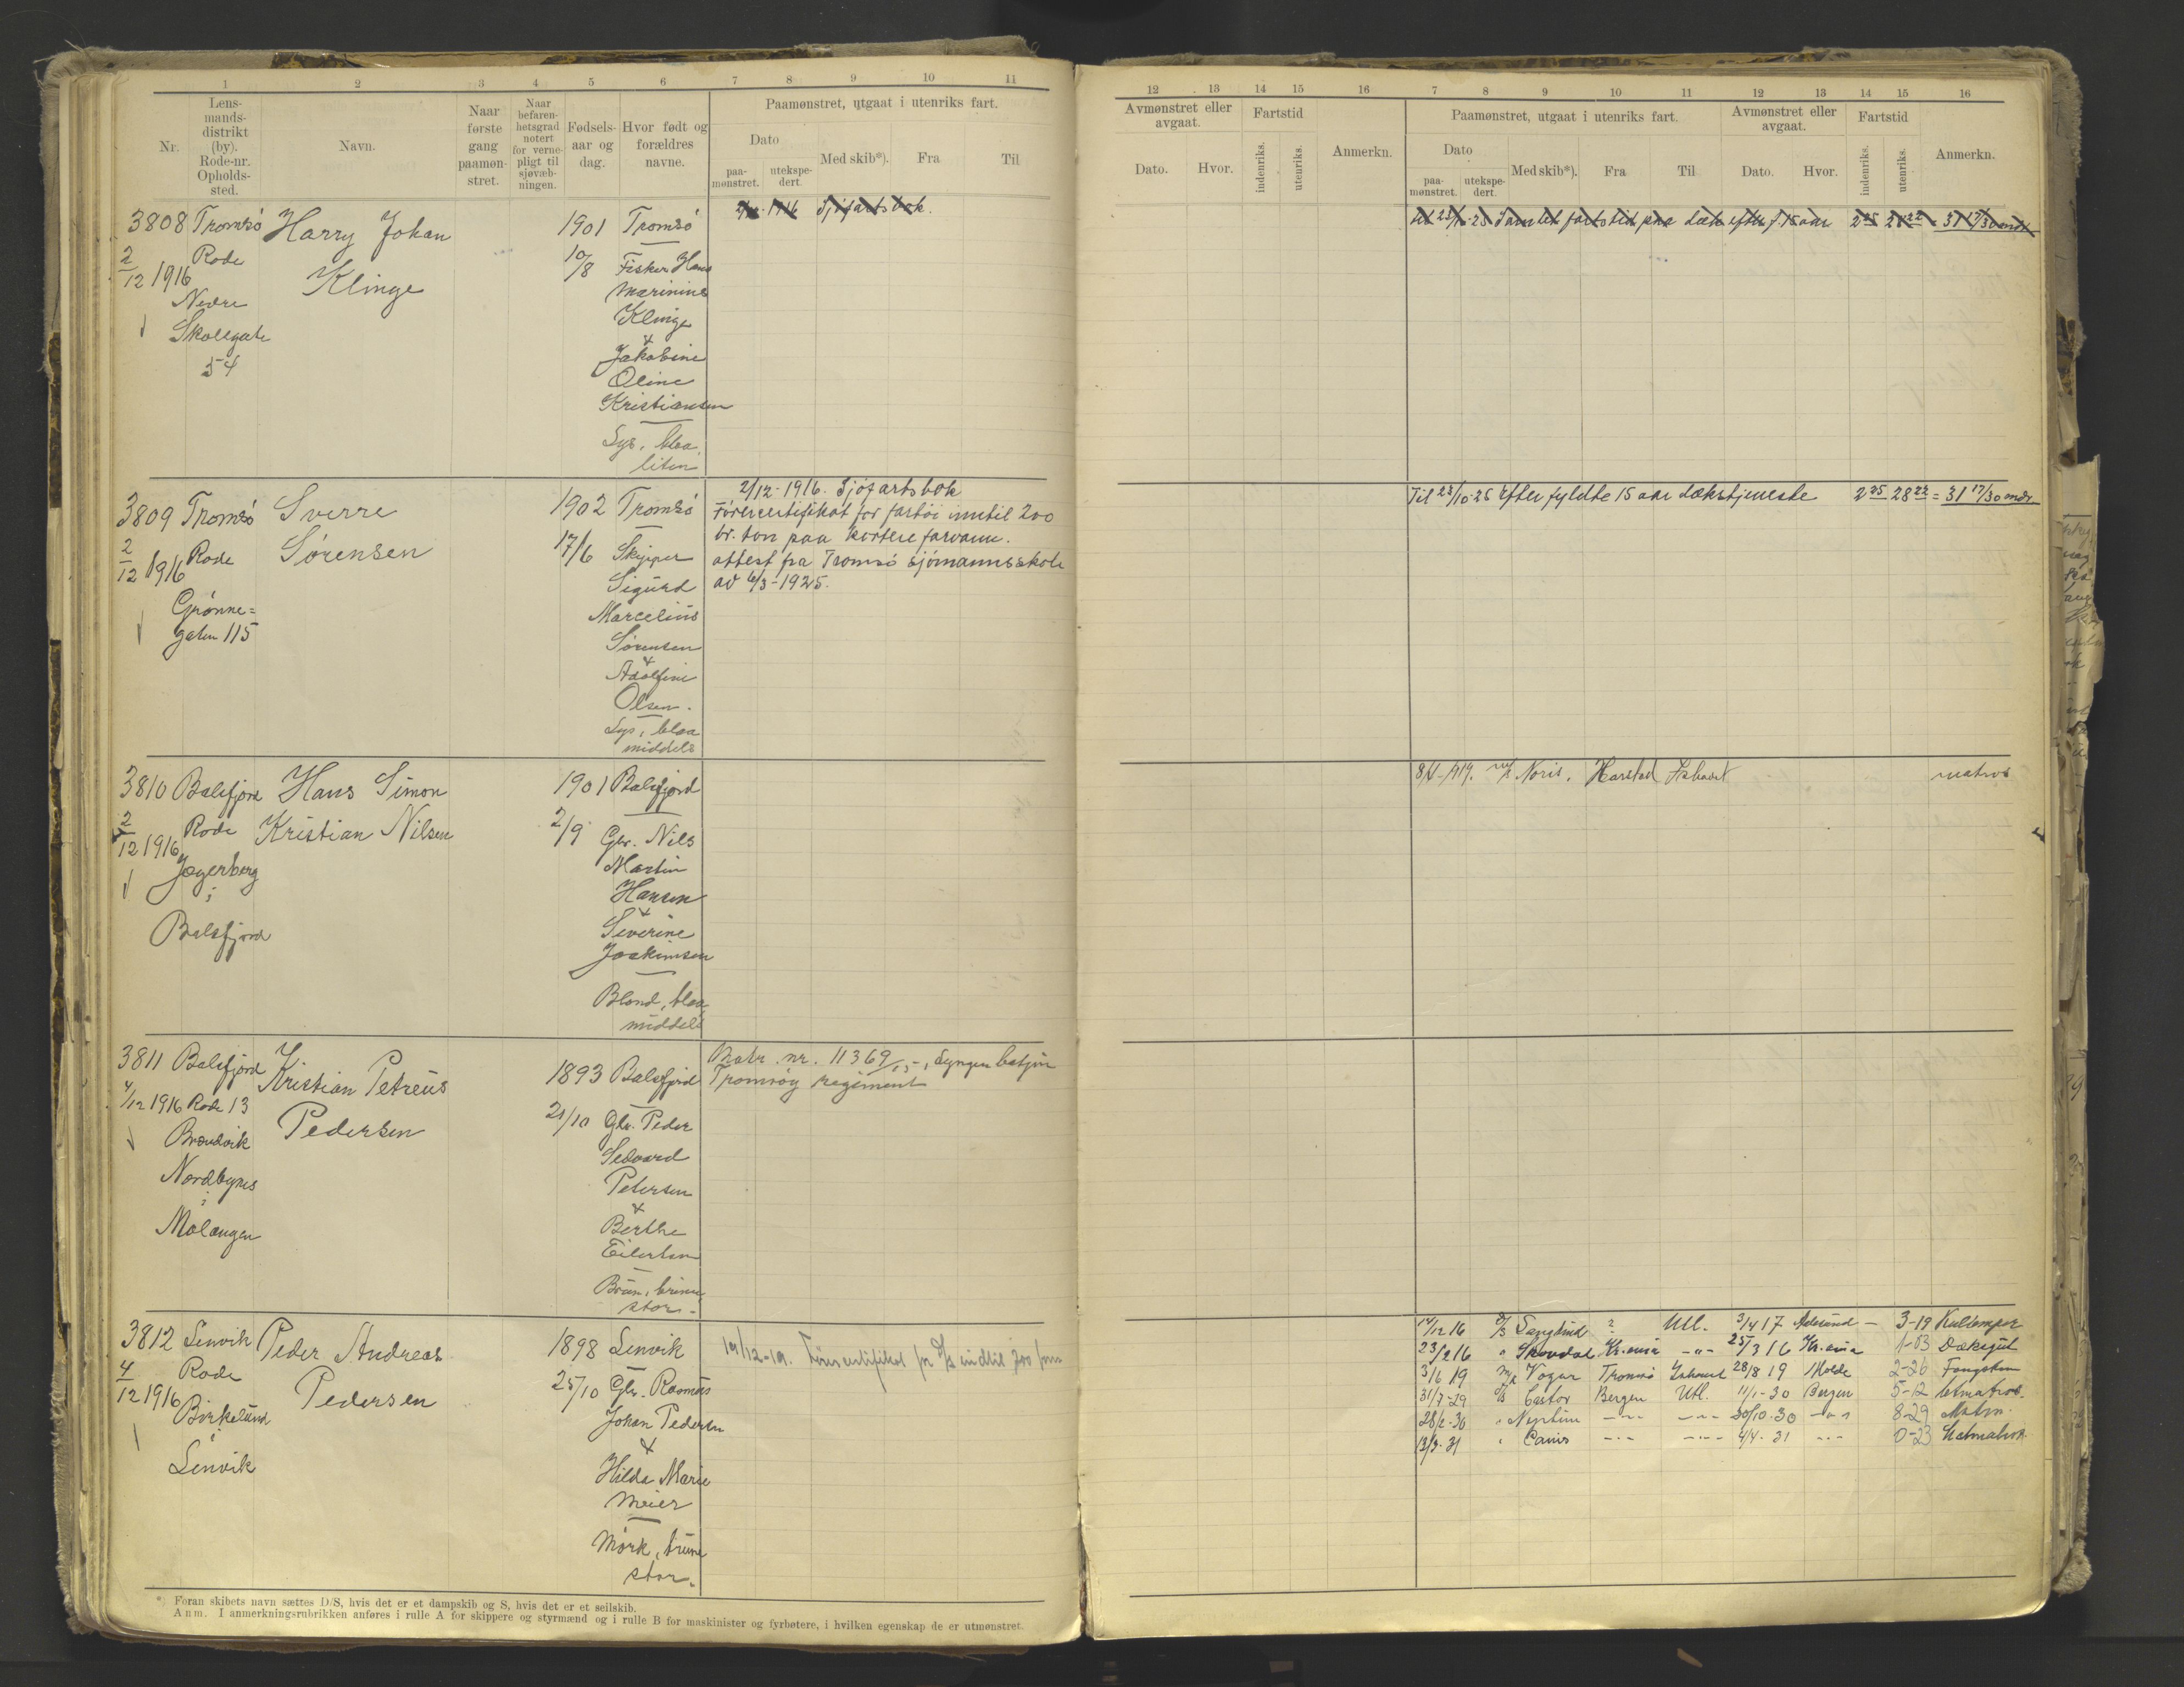 1 2 3 4 5 6 7 8 9 10 11
Nr.
Lens-
mands-
distrikt
(by).
Rode-nr.
Opholds-
sted.
Navn.
Naar
første
gang
paamøn-
stret.
Naar
befaren-
hetsgrad
notert
for verne-
pligt til
sjøvæb-
ningen.
Fødsels-
aar og
dag.
Hvor født og
forældres
navne.
Paamønstret, utgaat i utenriks fart.
Dato
paa-
mønstret.
utekspe-
dert.
Med skib*).
Fra
Til
3808 Tromsö Harry Johan 1901 Tromsö
2/12 1916 Rode Klinge 10/8 Fisker Hans
Nedre Marinius
Skolegate Klinge
54 &
Jakobine
Oline
Kristiansen
Lys, blaa,
liten
2/12-1916 Sjøfartsbok.
3809 Tromsö Sverre 1902 Tromsö
2/12 1916 Rode Sörensen 17/6 Skipper
Grönne= Sigurd
gaten 115 Marcelius
Sörensen
&
Adolfine
Olsen.
Lys, blaa
middels
2/12-1916. Sjøfartsbok
Förercertifikat for fartöi inntil 200
br. ton paa kortere farvann.
attest fra Tromsö sjömannsskole
av 6/3-1925.
3810 Balsfjord Hans Simon 1901 Balsfjord
2/12 1916 Rode Kristian Nilsen 2/9 Gbr. Nils
Jøgerberg Martin
i Hansen
Balsfjord &
Severine
Joakimsen
Blond, blaa,
middels
3811 Balsfjord Kristian Petreus 1893 Balsfjord
4/12 1916 Rode 13 Pedersen 21/10 Gbr. Peder
Brændvik Sedvard
Nordbynes Petersen
i &
Malangen Berthe
Eilertsen
Brun, brune
stor.
Matr. nr. 11369/15, Lyngen batjon
Tromsøy regiment
3812 Lenvik Peder Andreas 1898 Lenvik
4/12 1916 Rode Pedersen 25/10 Gbr. Rasmus
Birkelund Johan Pedersen
i &
Lenvik Hilda Marie
Meier
Mörk, brune
stor.
19/12-19. Förercertifikat for D/S indtil 200 tons
*) Foran skibets navn sættes D/S, hvis det er et dampskib og S, hvis det er et seilskib.
Anm. I anmerkningsrubrikken anføres i rulle A for skippere og styrmænd og i rulle B for maskinister og fyrbøtere, i hvilken egenskap de er utmønstret.
12 13 14 15 16 7 8 9 10 11 12 13 14 15 16
Avmønstret eller
avgaat.
Dato.
Hvor.
Fartstid
indenriks.
utenriks.
Anmerkn.
Paamønstret, utgaat i utenriks fart.
Dato
paa-
mønstret.
utekspe-
dert.
Med skib*).
Fra
Til
Avmønstret eller
avgaat.
Dato.
Hvor.
Fartstid
indenriks.
utenriks.
Anmerkn.
til 23/10-25 Samlet fartstid paa dæk efter f. 15 aar 2 25 28 22 = 31 17/30 mndr
Til 23/10-25 Efter fyldte 15 aar dækstjeneste 2 25 28 22 = 31 17/30 mndr
8/4-1919. m/k Noris. Harstad Ishavet matros
14/12 16 D/S Sangstad ? Utl. 3/4 17 Aalesund - 3-19 Kullemper
23/2 16 " Skondal Kr.ania -"- 25/3 16 Kr.ania 1-03 Dæksgut
3/6 19 m/k Vogar Tromsö Ishavet 28/8 19 Molde 2-26 Fangstm
31/7-29 D/S Castor Bergen Utl. 11/1-30 Bergen 5-12 Letmatros.
28/2-30 " Neptun -"- -"- 30/10-30 -"- 8-29 Matr.
13/3-31 " Canis -"- -"- 4/4-31 -"- 0-23 Letmatros